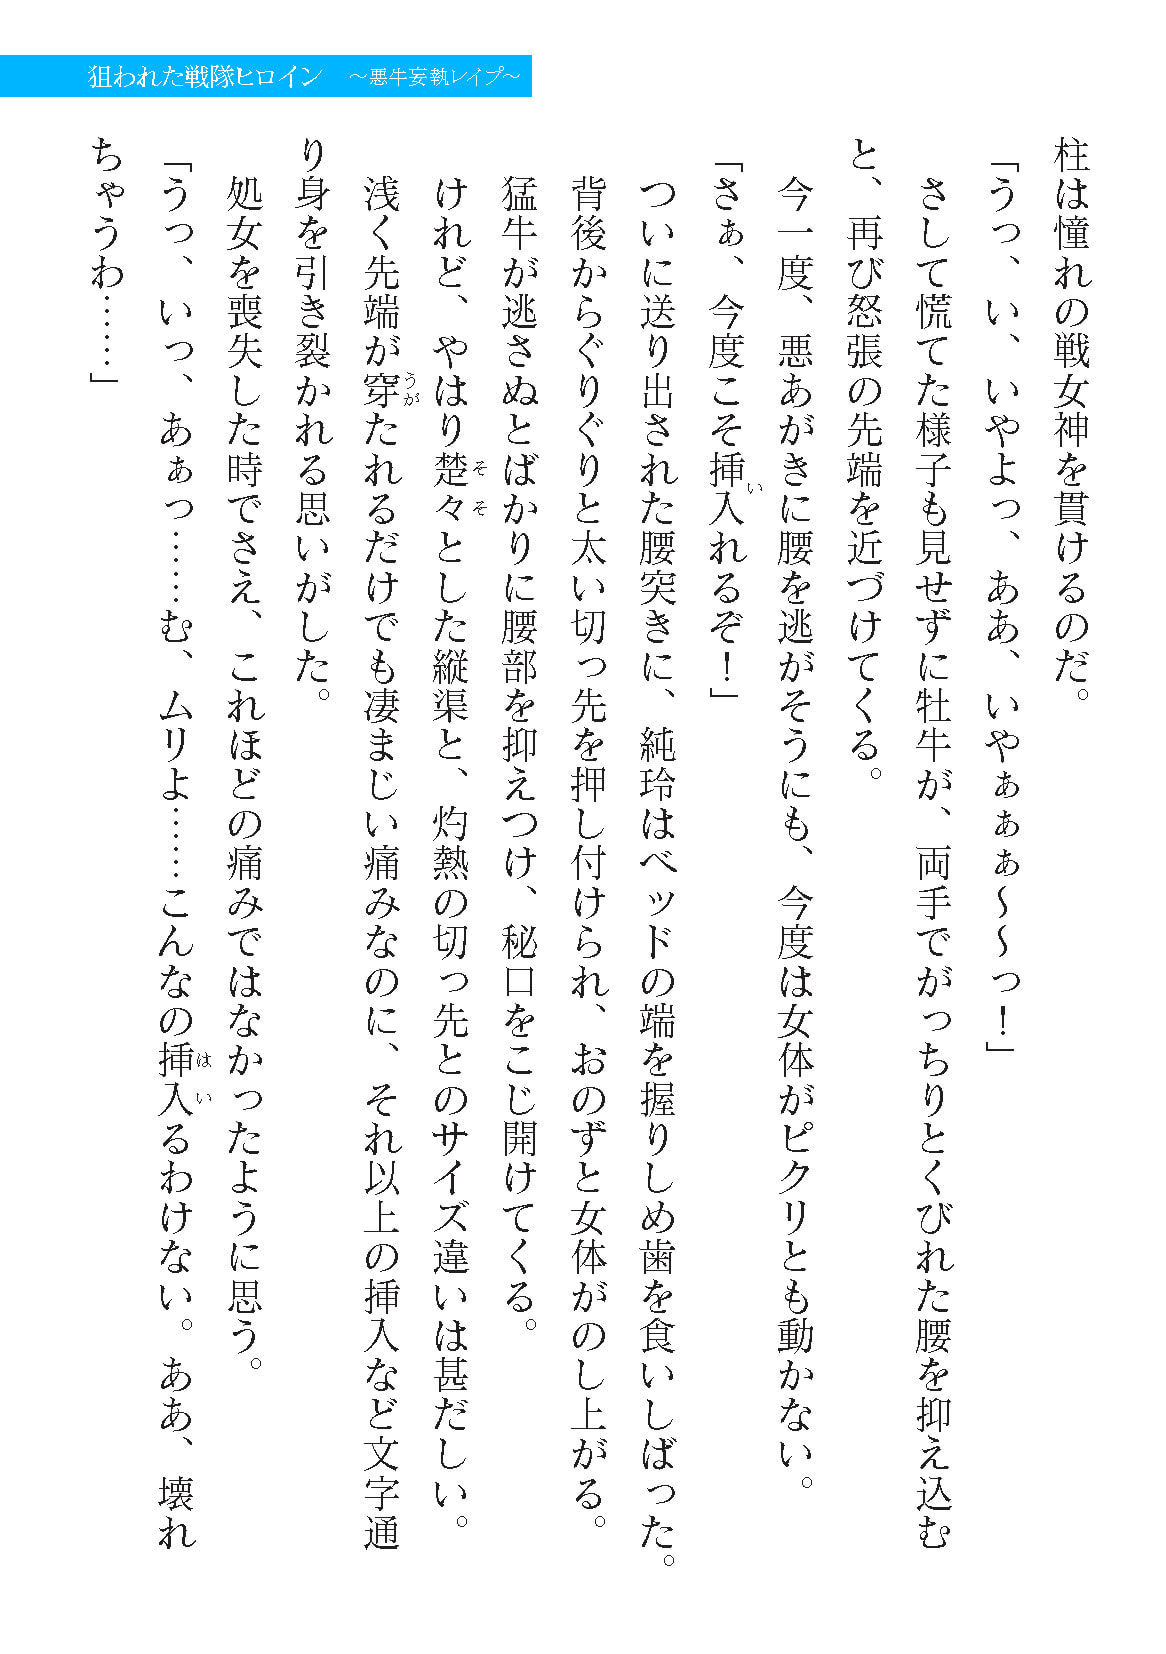 狙われた戦隊ヒロイン ～悪牛妄執レイプ～
柱は憧れの戦女神を貫けるのだ。
「うっ、い、いやよっ、ああ、いやぁぁぁ～～っ！」
さして慌てた様子も見せずに牡牛が、両手でがっちりとくびれた腰を抑え込む
と、再び怒張の先端を近づけてくる。
今一度、悪あがきに腰を逃がそうにも、今度は女体がピクリとも動かない。
「さぁ、今度こそ挿入れるぞ！」
ついに送り出された腰突きに、純玲はベッドの端を握りしめ歯を食いしばった。
背後からぐりぐりと太い切っ先を押し付けられ、おのずと女体がのし上がる。
猛牛が逃さぬとばかりに腰部を抑えつけ、秘口をこじ開けてくる。
けれど、やはり楚々とした縦渠と、灼熱の切っ先とのサイズ違いは甚だしい。
浅く先端が穿たれるだけでも凄まじい痛みなのに、それ以上の挿入など文字通
り身を引き裂かれる思いがした。
処女を喪失した時でさえ、これほどの痛みではなかったように思う。
「うっ、いっ、あぁっ……む、ムリよ……こんなの挿入るわけない。ああ、壊れ
ちゃうわ……」